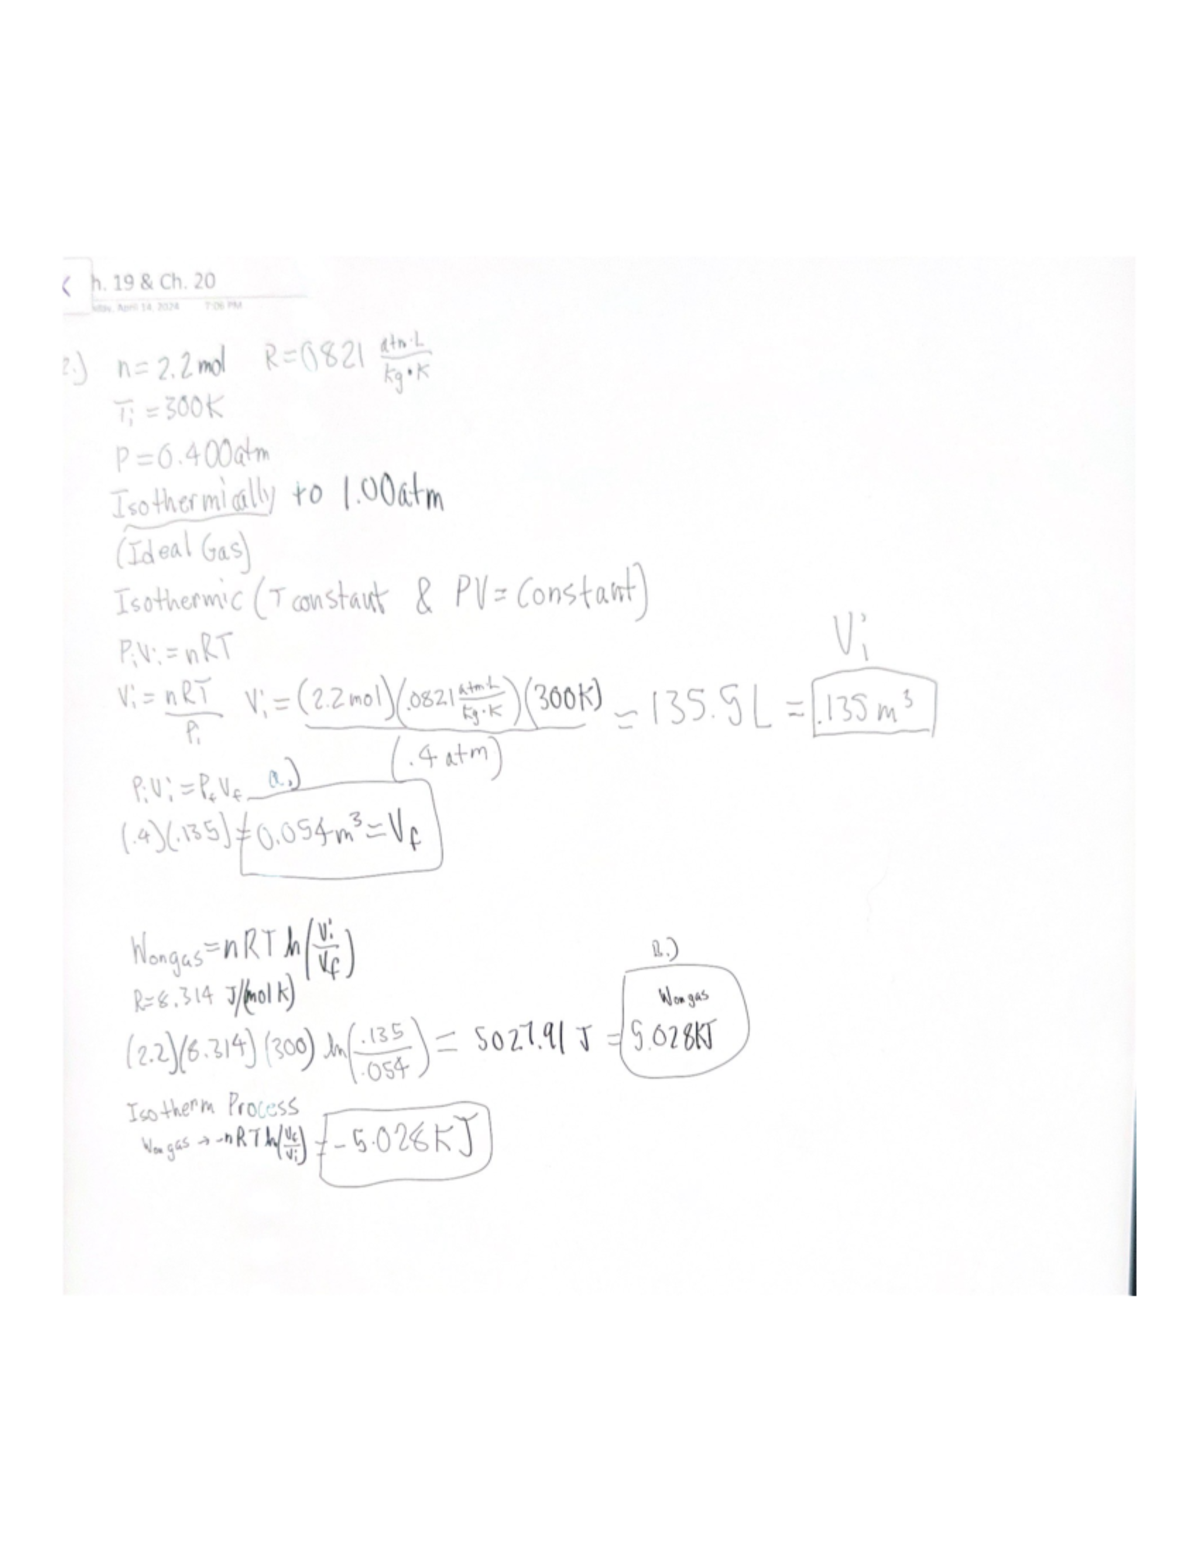 h. 19 & Ch. 20
April 14, 2024 7:06 PM
2.) n = 2.2 mol R = 0821 atm·L / kg·K
Ti = 300K
P = 0.400atm
Isothermically to 1.00atm
(Ideal Gas)
Isothermic (T constant & PV = Constant)
PiVi = nRT
Vi
Vi = nRT / Pi Vi = (2.2 mol)(.0821 atm·L / kg·K)(300K) / (.4 atm) = 135.5 L = .135 m³
PiVi = PfVf a.)
(.4)(.135) = 0.054 m³ = Vf
Wongas = nRT ln(Vi / Vf)
B.)
R = 8.314 J/(mol K)
Wongas
(2.2)(8.314)(300) ln(.135 / .054) = 5027.91 J = 5.028KJ
Isotherm Process
Wongas → -nRT ln(Vf / Vi) = -5.028KJ